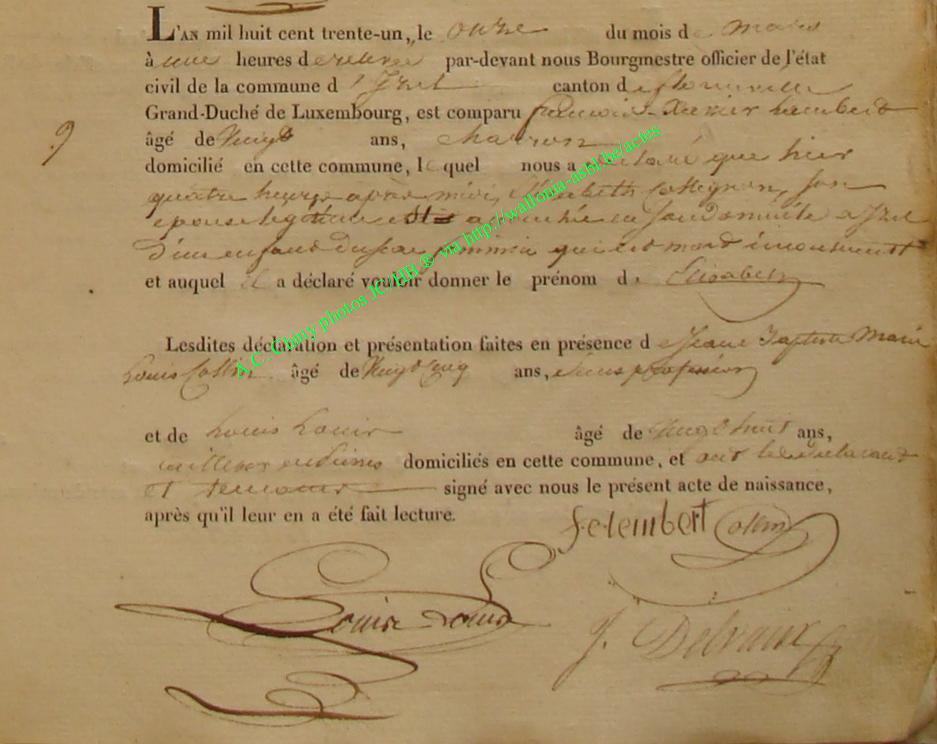 L'AN mil huit cent trente-un, le onze du mois de Mars
à une heures de relevée par-devant nous Bourgmestre officier de l'état
civil de la commune d'Izel canton de florenville
Grand-Duché de Luxembourg, est comparu francois-Xavier Lambert
9
âgé de Vingt ans, charron
domicilié en cette commune, lequel nous a déclaré que hier
quatre heures après midi, Elisabeth Collignon, son
épouse légitime est accouchée en son domicile a Izel
D'un enfant du sexe feminin qui est mort
et auquel il a déclaré vouloir donner le prénom d'Elisabeth
Lesdites déclaration et présentation faites en présence de Jean Baptiste Marie
Louis Collin, âgé de Vingt cinq ans, sans profession
et de Louis Louis âgé de Vingt huit ans,
domiciliés en cette commune, et ont les déclarant
et temoins signé avec nous le présent acte de naissance,
après qu'il leur en a été fait lecture.
Collin
Louis Louis
J. Delvaux
A.C. Chiny photos JC HB ® via http://wallonia-asbl.be/actes